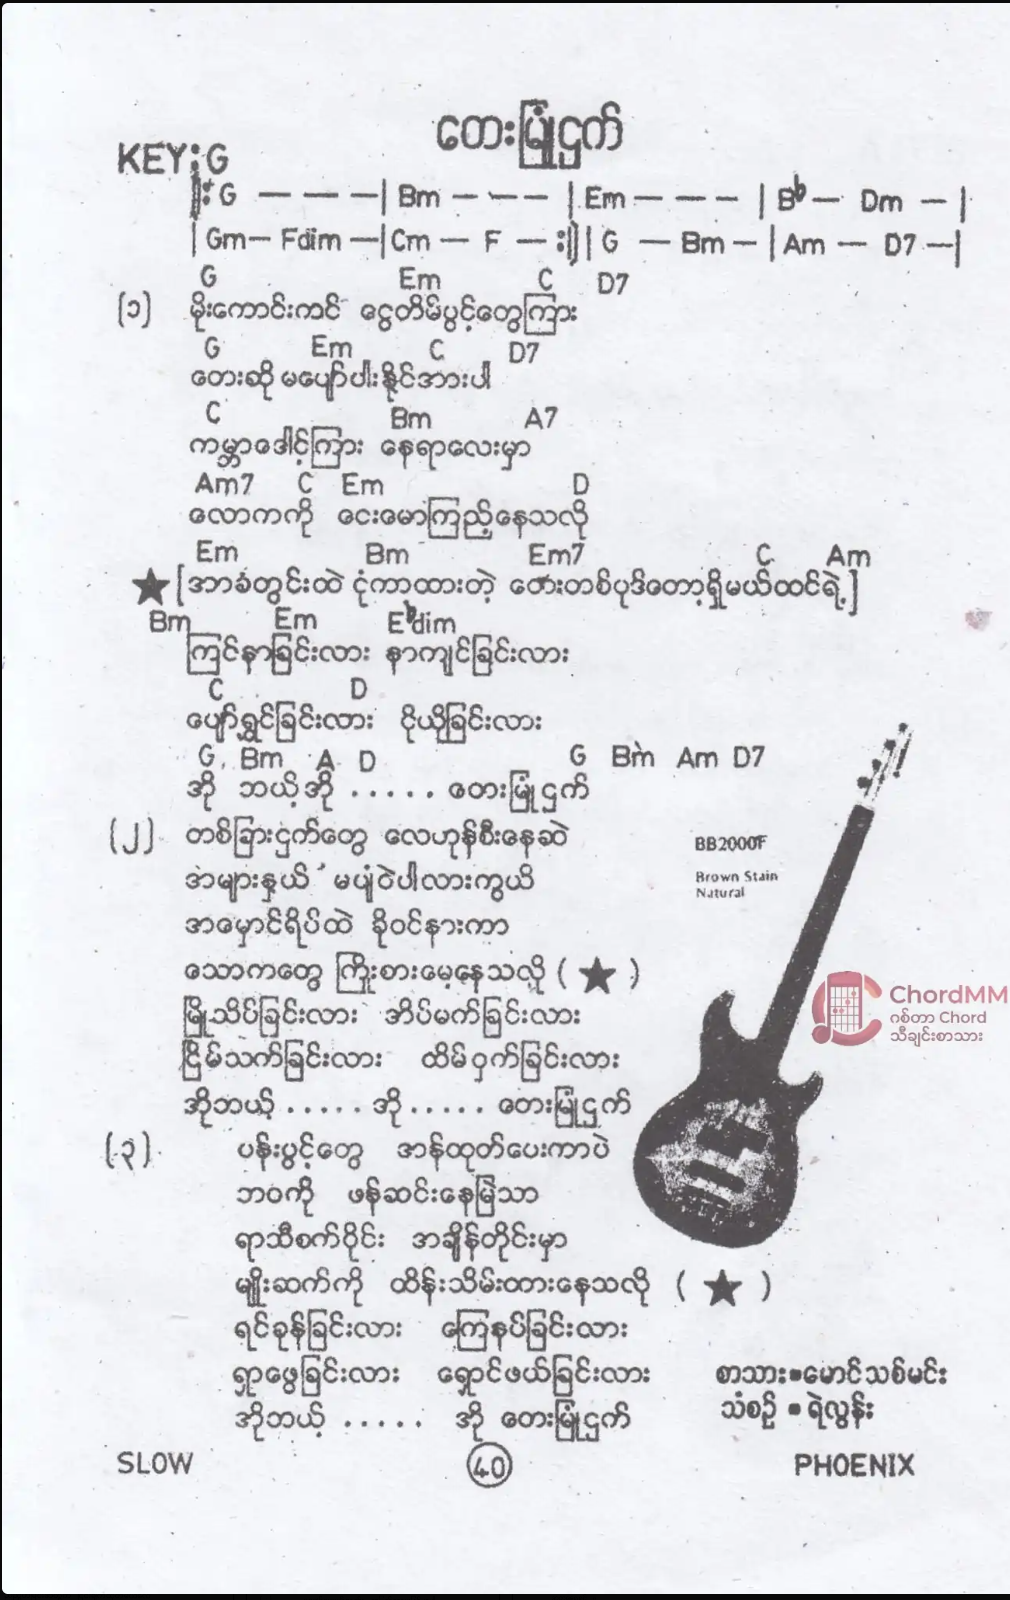 တေးမြုံငှက်
KEY:G
‖: G — — — | Bm — — — | Em — — — | B♭ — Dm — |
| Gm — Fdim — | Cm — F — :‖ | G — Bm — | Am — D7 — |
G Em C D7
(၁) မိုးကောင်းကင် ငွေတိမ်ပွင့်တွေကြား
G Em C D7
တေးဆို မပျော်ပါးနိုင်အားပါ
C Bm A7
ကမ္ဘာဒေါင့်ကြား နေရာလေးမှာ
Am7 C Em D
လောကကို ငေးမောကြည့်နေသလို
Em Bm Em7 C Am
★ [အာခံတွင်းထဲ ငုံကာထားတဲ့ တေးတစ်ပုဒ်တော့ရှိမယ်ထင်ရဲ့]
Bm Em E♭dim
ကြင်နာခြင်းလား နာကျင်ခြင်းလား
C D
ပျော်ရွှင်ခြင်းလား ငိုယိုခြင်းလား
G Bm A D G Bm Am D7
အို ဘယ့်အို ..... တေးမြုံငှက်
(၂) တစ်ခြားငှက်တွေ လေဟုန်စီးနေဆဲ
အများနှယ် မပျံဝဲပါလားကွယ်
အမှောင်ရိပ်ထဲ ခိုဝင်နားကာ
သောကတွေ ကြိုးစားမေ့နေသလို ( ★ )
မြိုသိပ်ခြင်းလား အိပ်မက်ခြင်းလား
ငြိမ်သက်ခြင်းလား ထိမ်ဝှက်ခြင်းလား
အိုဘယ့် ..... အို ..... တေးမြုံငှက်
(၃) ပန်းပွင့်တွေ အန်ထုတ်ပေးကာပဲ
ဘဝကို ဖန်ဆင်းနေမြဲသာ
ရာသီစက်ဝိုင်း အချိန်တိုင်းမှာ
မျိုးဆက်ကို ထိန်းသိမ်းထားနေသလို ( ★ )
ရင်ခုန်ခြင်းလား ကြေနပ်ခြင်းလား
ရှာဖွေခြင်းလား ရှောင်ဖယ်ခြင်းလား
အိုဘယ့် ..... အို တေးမြုံငှက်
BB2000F
Brown Stain
Natural
ChordMM
ဂစ်တာ Chord
သီချင်းစာသား
စာသား=မောင်သစ်မင်း
သံစဉ် = ရဲလွန်း
SLOW
40
PHOENIX